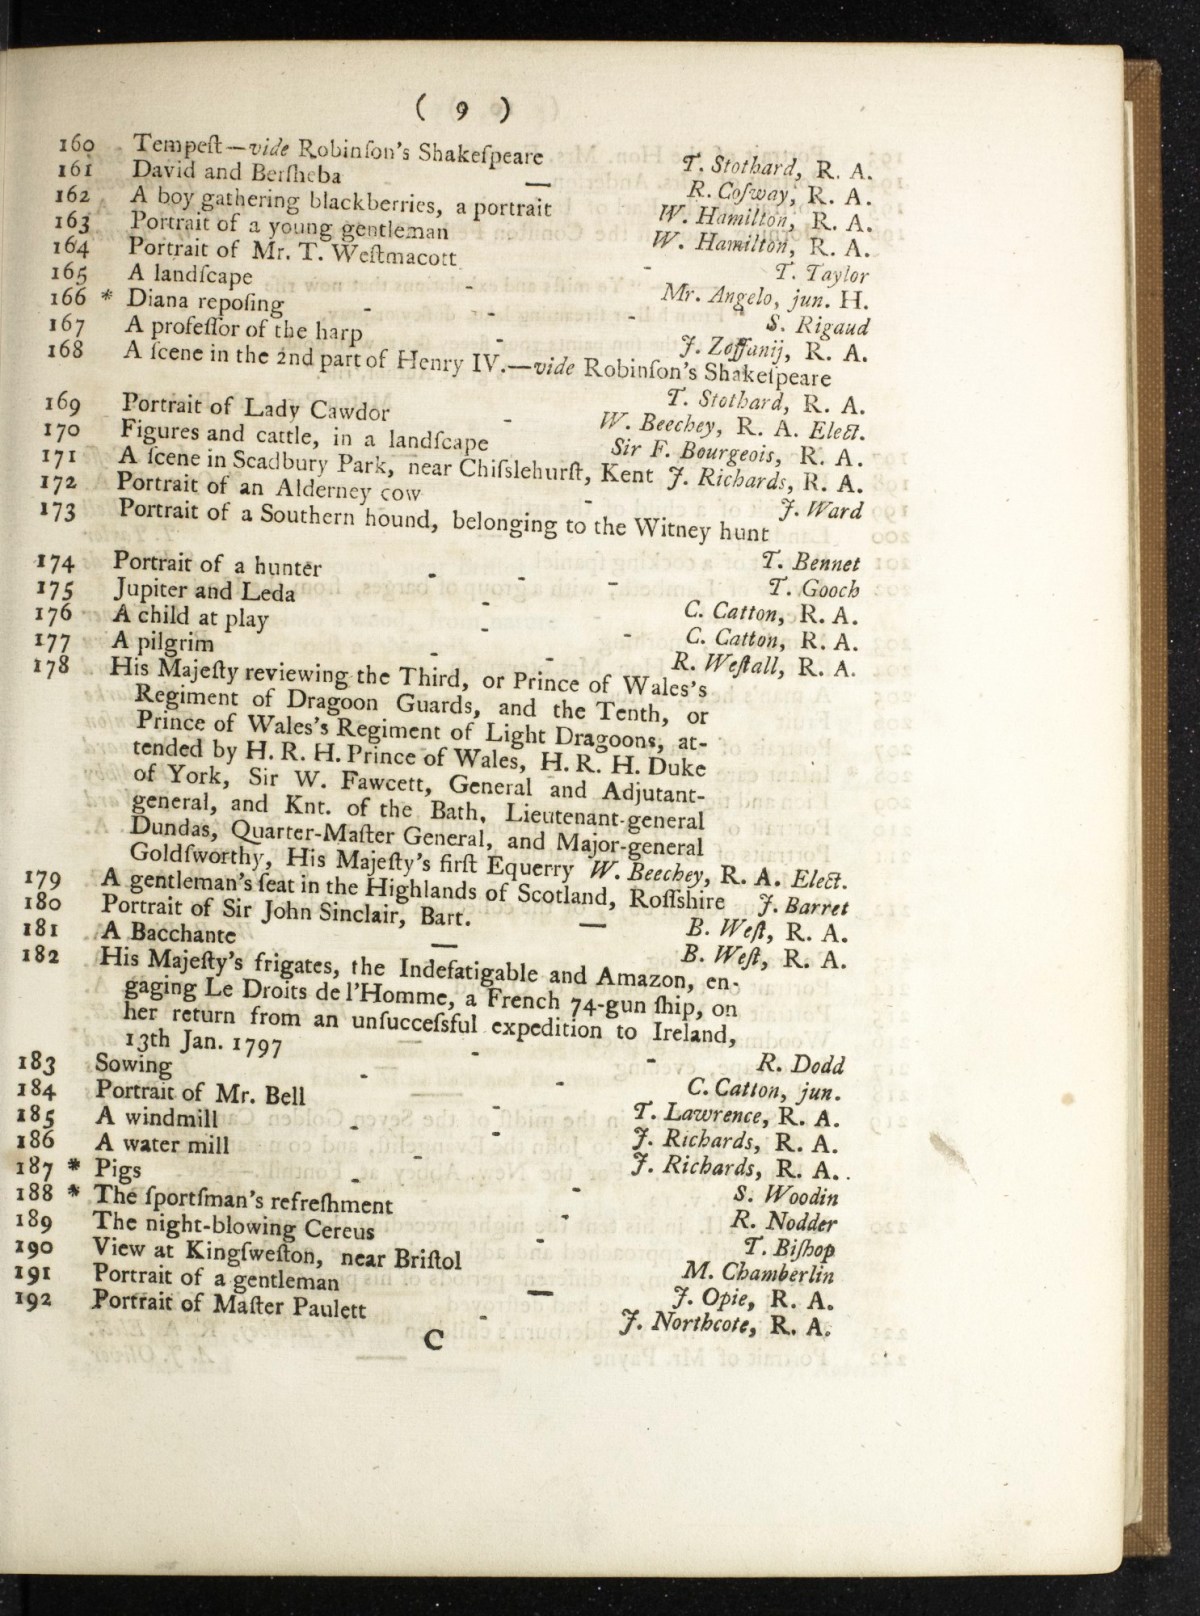 ( 9 )
160 Tempeſt—vide Robinſon's Shakeſpeare T. Stothard, R. A.
161 David and Berſheba — R. Coſway, R. A.
162 A boy gathering blackberries, a portrait W. Hamilton, R. A.
163 Portrait of a young gentleman W. Hamilton, R. A.
164 Portrait of Mr. T. Weſtmacott - T. Taylor
165 A landſcape - Mr. Angelo, jun. H.
166 * Diana repoſing - - - S. Rigaud
167 A profeſſor of the harp - J. Zoffanij, R. A.
168 A ſcene in the 2nd part of Henry IV.—vide Robinſon's Shakeſpeare
T. Stothard, R. A.
169 Portrait of Lady Cawdor - W. Beechey, R. A. Elect.
170 Figures and cattle, in a landſcape Sir F. Bourgeois, R. A.
171 A ſcene in Scadbury Park, near Chiſslehurſt, Kent J. Richards, R. A.
172 Portrait of an Alderney cow - J. Ward
173 Portrait of a Southern hound, belonging to the Witney hunt
T. Bennet
174 Portrait of a hunter - - - T. Gooch
175 Jupiter and Leda - C. Catton, R. A.
176 A child at play - - C. Catton, R. A.
177 A pilgrim - - R. Weſtall, R. A.
178 His Majeſty reviewing the Third, or Prince of Wales's
Regiment of Dragoon Guards, and the Tenth, or
Prince of Wales's Regiment of Light Dragoons, at-
tended by H. R. H. Prince of Wales, H. R. H. Duke
of York, Sir W. Fawcett, General and Adjutant-
general, and Knt. of the Bath, Lieutenant-general
Dundas, Quarter-Maſter General, and Major-general
Goldſworthy, His Majeſty's firſt Equerry W. Beechey, R. A. Elect.
179 A gentleman's ſeat in the Highlands of Scotland, Roſſshire J. Barret
180 Portrait of Sir John Sinclair, Bart. — B. Weſt, R. A.
181 A Bacchante — B. Weſt, R. A.
182 His Majeſty's frigates, the Indefatigable and Amazon, en-
gaging Le Droits de l'Homme, a French 74-gun ſhip, on
her return from an unſucceſsful expedition to Ireland,
13th Jan. 1797 - - R. Dodd
183 Sowing - - C. Catton, jun.
184 Portrait of Mr. Bell - T. Lawrence, R. A.
185 A windmill - J. Richards, R. A.
186 A water mill - J. Richards, R. A.
187 * Pigs - - S. Woodin
188 * The ſportſman's refreſhment - R. Nodder
189 The night-blowing Cereus - T. Biſhop
190 View at Kingſweſton, near Briſtol M. Chamberlin
191 Portrait of a gentleman — J. Opie, R. A.
192 Portrait of Maſter Paulett - J. Northcote, R. A.
C